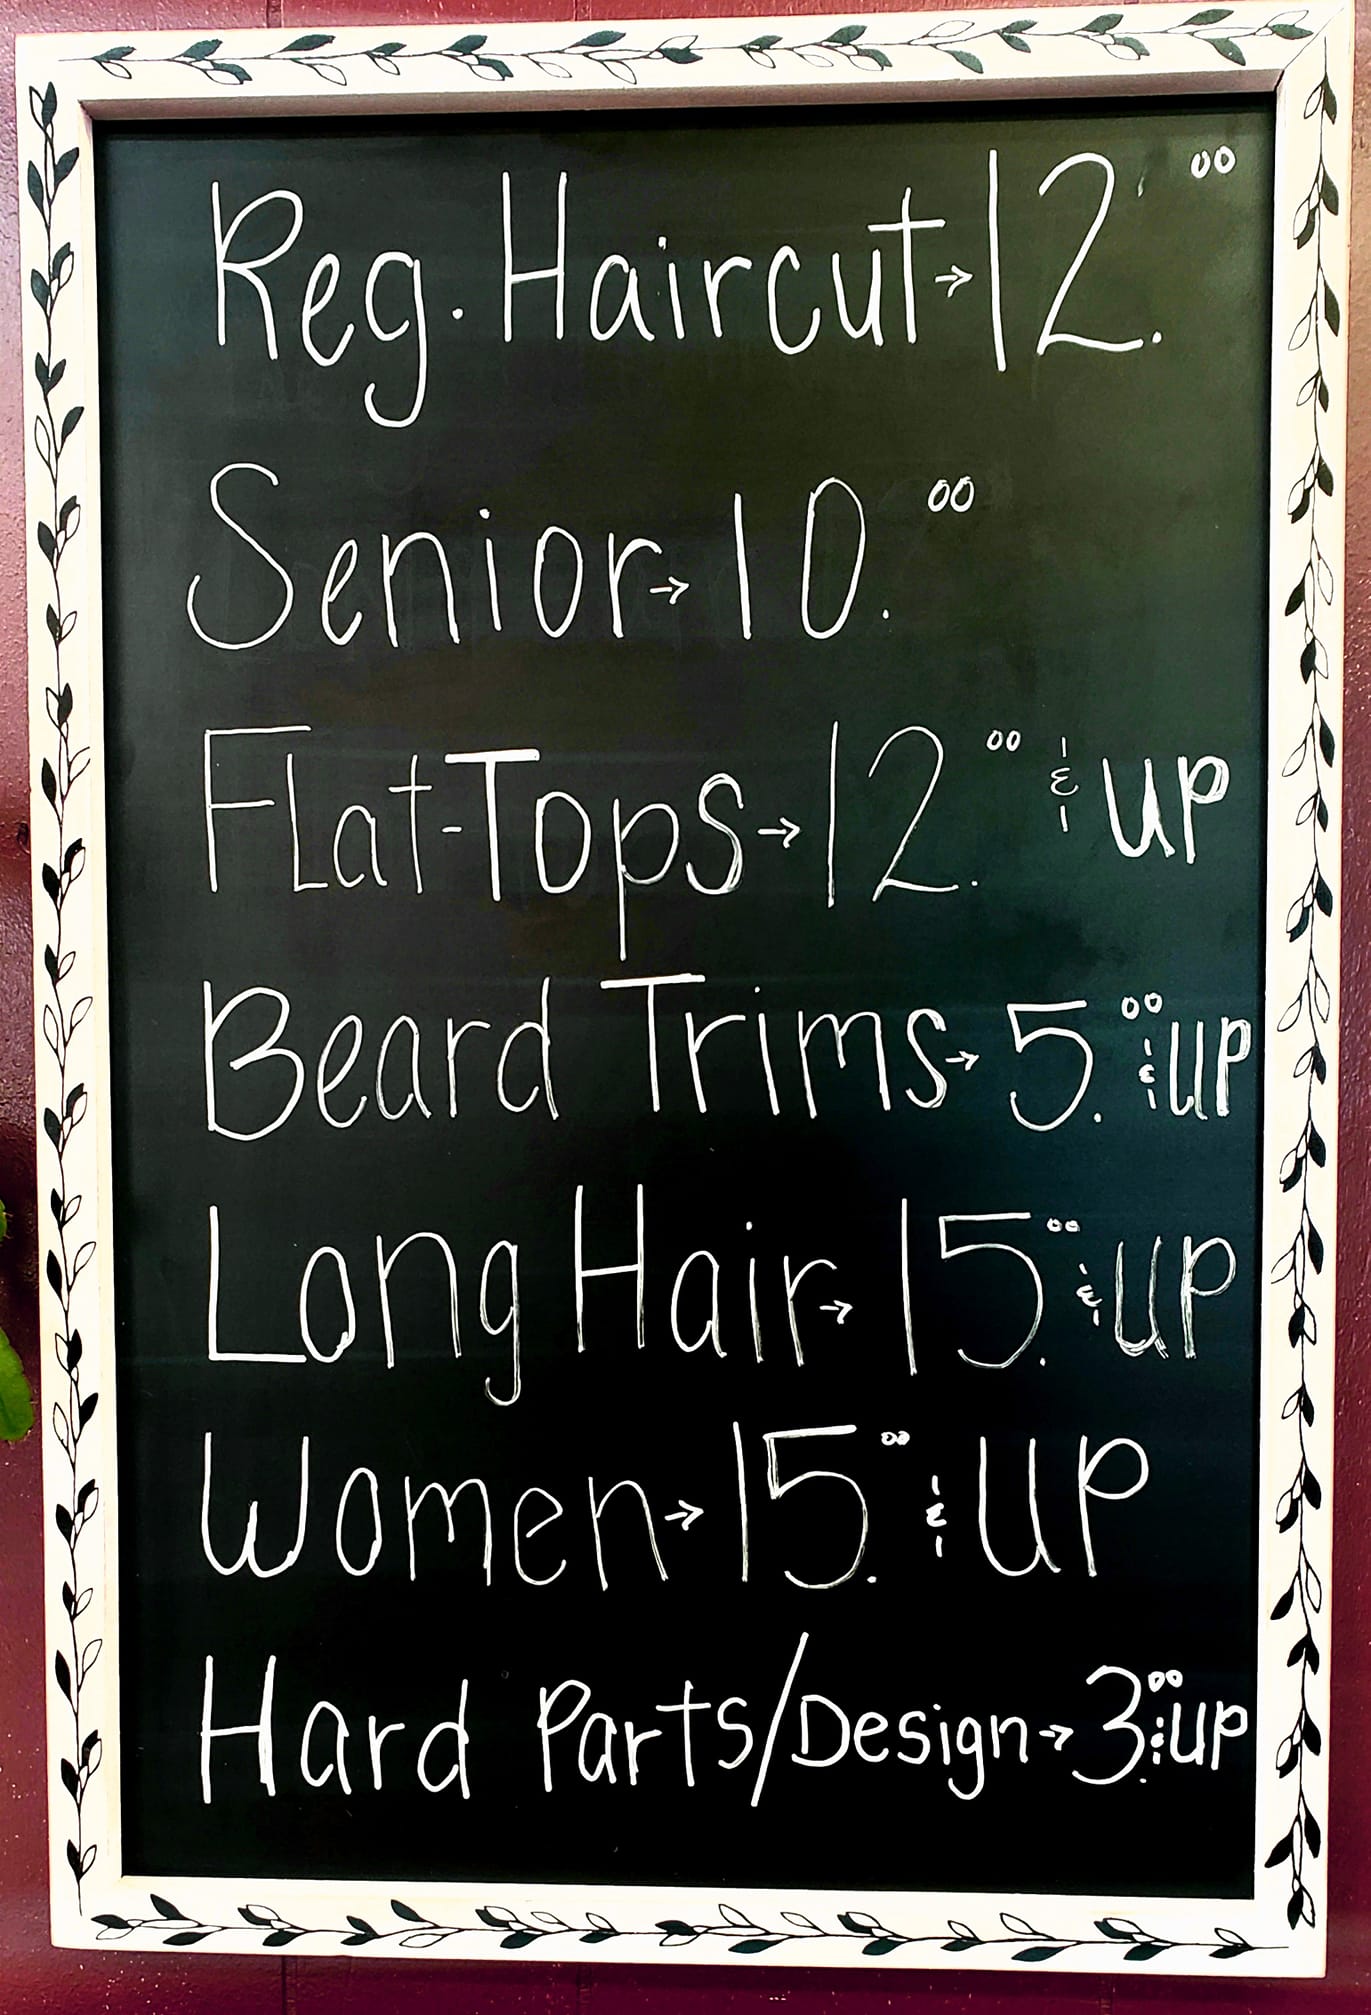 Reg. Haircut→12.00
Senior→10.00
Flat-Tops→12.00 & up
Beard Trims→5.00 & up
Long Hair→15.00 & up
Women→15.00 & up
Hard Parts/Design→3.00 & up